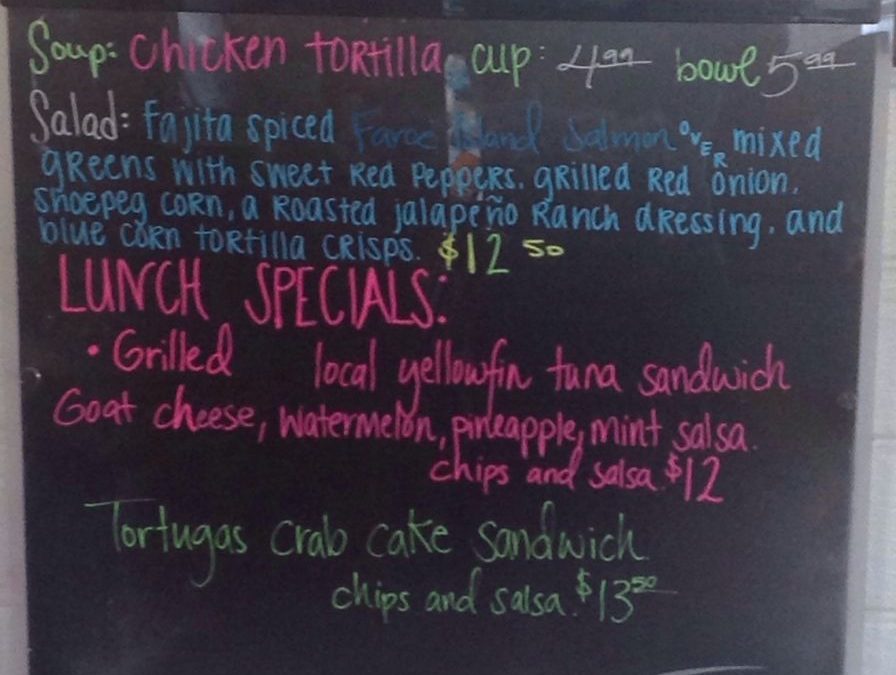 Soup: Chicken Tortilla cup: 4.99 bowl 5.99
Salad: Fajita spiced Faroe Island Salmon over mixed
greens with sweet Red Peppers, grilled Red onion,
shoepeg corn, a Roasted jalapeño Ranch dressing, and
blue corn tortilla crisps. $12.50
LUNCH SPECIALS:
• Grilled local yellowfin tuna sandwich
Goat cheese, Watermelon, pineapple, mint salsa.
chips and salsa. $12
Tortugas crab cake sandwich.
chips and salsa. $13.50